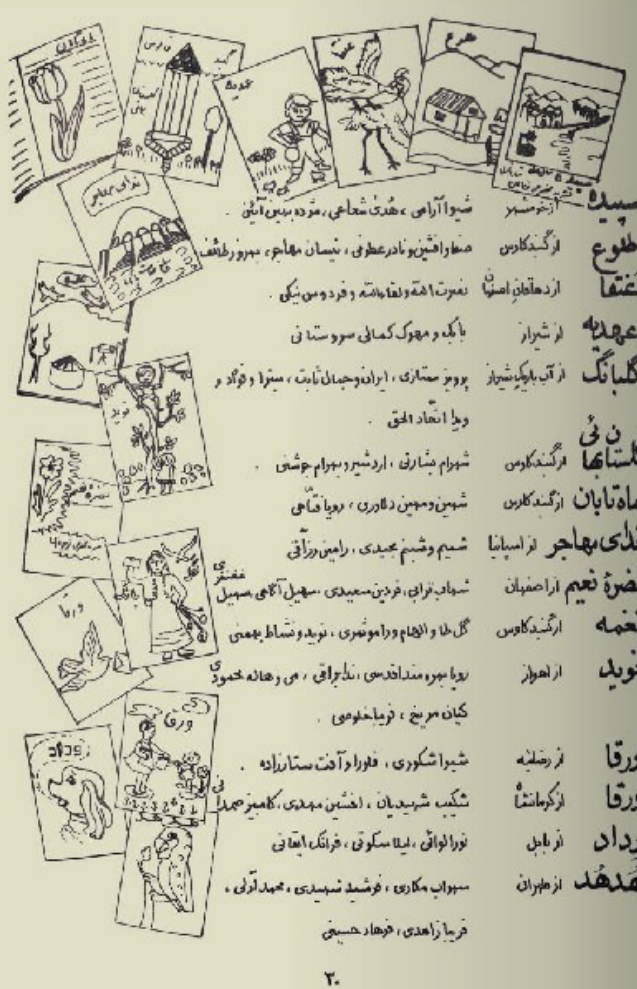 طلوع
ورقا
نوید
ورقا
وداد
سپیده از خوشهر شیوا آرامی ، هدی شعاعی ، مژده بهین آئین .
طلوع از گنبدکاوس صفا و افشین و نادر عطوفی ، نیسان مهاجر ، بهروز طائف
عنقا از دهاقان اصفهان نصرت الله و لقاءالله و فردوس نیکی .
عهدیه از شیراز بابک و مهوک کمالی سروستانی
گلبانگ از آب باریک شیراز پرویز ممتازی ، ایران و جمال ثابت ، میترا و فؤاد و
ویدا اتحاد الحق .
از گنبدکاوس شهرام بشارتی ، اردشیر و بهرام جوشنی .
ماه تابان از گنبدکاوس شهین و مهین دلاوری ، رویا فتاحی
ندای مهاجر از اسپانیا شمیم و شبنم مجیدی ، رامین رزاقی
نضرهٔ نعیم از اصفهان شهاب ترابی ، فردین سعیدی ، سهیل آگاهی ، سهیل غضنفری
نغمه از گنبدکاوس گل طا و الهام و درا موشهری ، نوید و نشاط بهمنی
نوید از اهواز رویا بهره مند اقدسی ، ندا براقی ، می و هاله محمودی
کیان مریخ ، فریبا خلوصی .
ورقا از رضائیه شیوا شکوری ، فلورا و آفت ستارزاده .
ورقا از کرمانشاه شکیب شهیدیان ، افشین مهدی ، کامبیز صمدانی
وداد از بابل نورا لوائی ، لیلا سکوتی ، فرانک ایقانی
هدهد از طهران سهراب مکاری ، فرشید شهیدی ، محمد آدلی ،
فریبا زاهدی ، فرهاد حسینی
۳۰